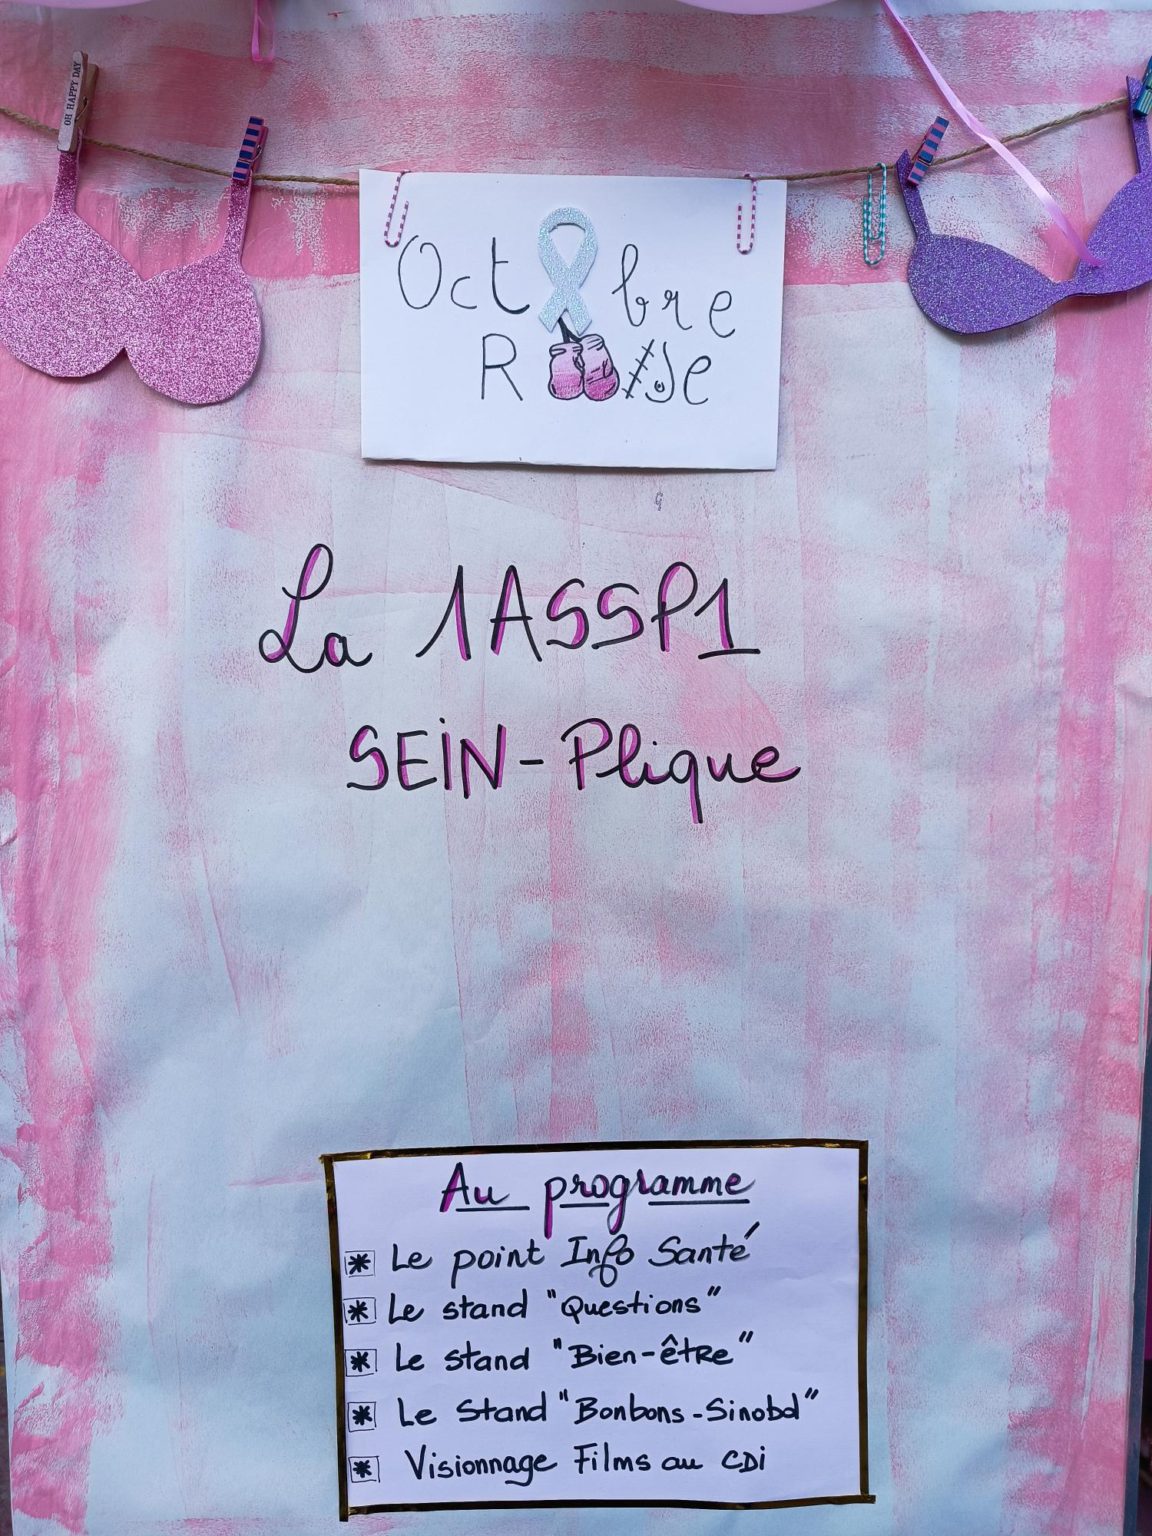 OH HAPPY DAY
Octobre
Rose
La 1ASSP1
SEIN-Plique
Au programme
* Le point Info Santé
* Le stand "Questions"
* Le stand "Bien-être"
* Le Stand "Bonbons-Sinobol"
* Visionnage Films au CDi